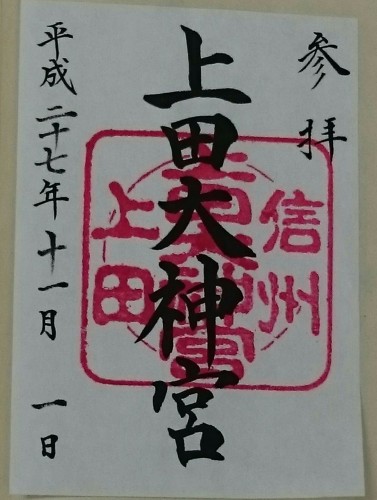 参拝
上田大神宮
信州
上田
平成二十七年十一月 一日